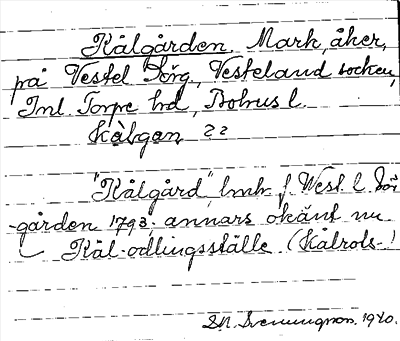 Kålgården. Mark, åker,
på Vestel Törg, Vesteland socken,
Inl Torpe hd, Bohus l.
Kålgan ??
"Kålgård" lmk. f. West. l.
-gården 1793; annars okänt nu
Kål-odlingsställe (Kålrots-!
Sn. Svenungson. 1940.